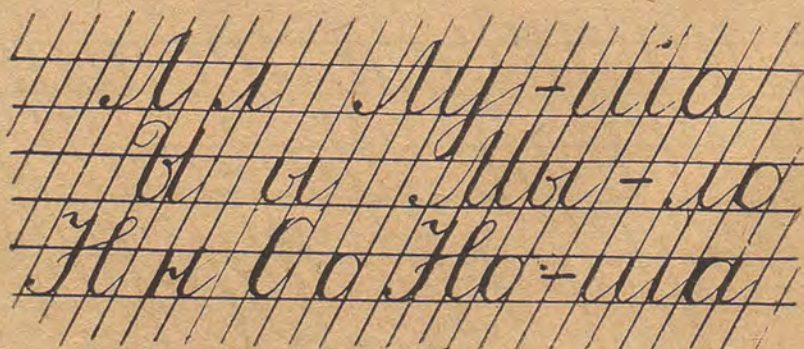 Л л Лу-ша
Ы ы Мы-ло
Н н О о Но-ша